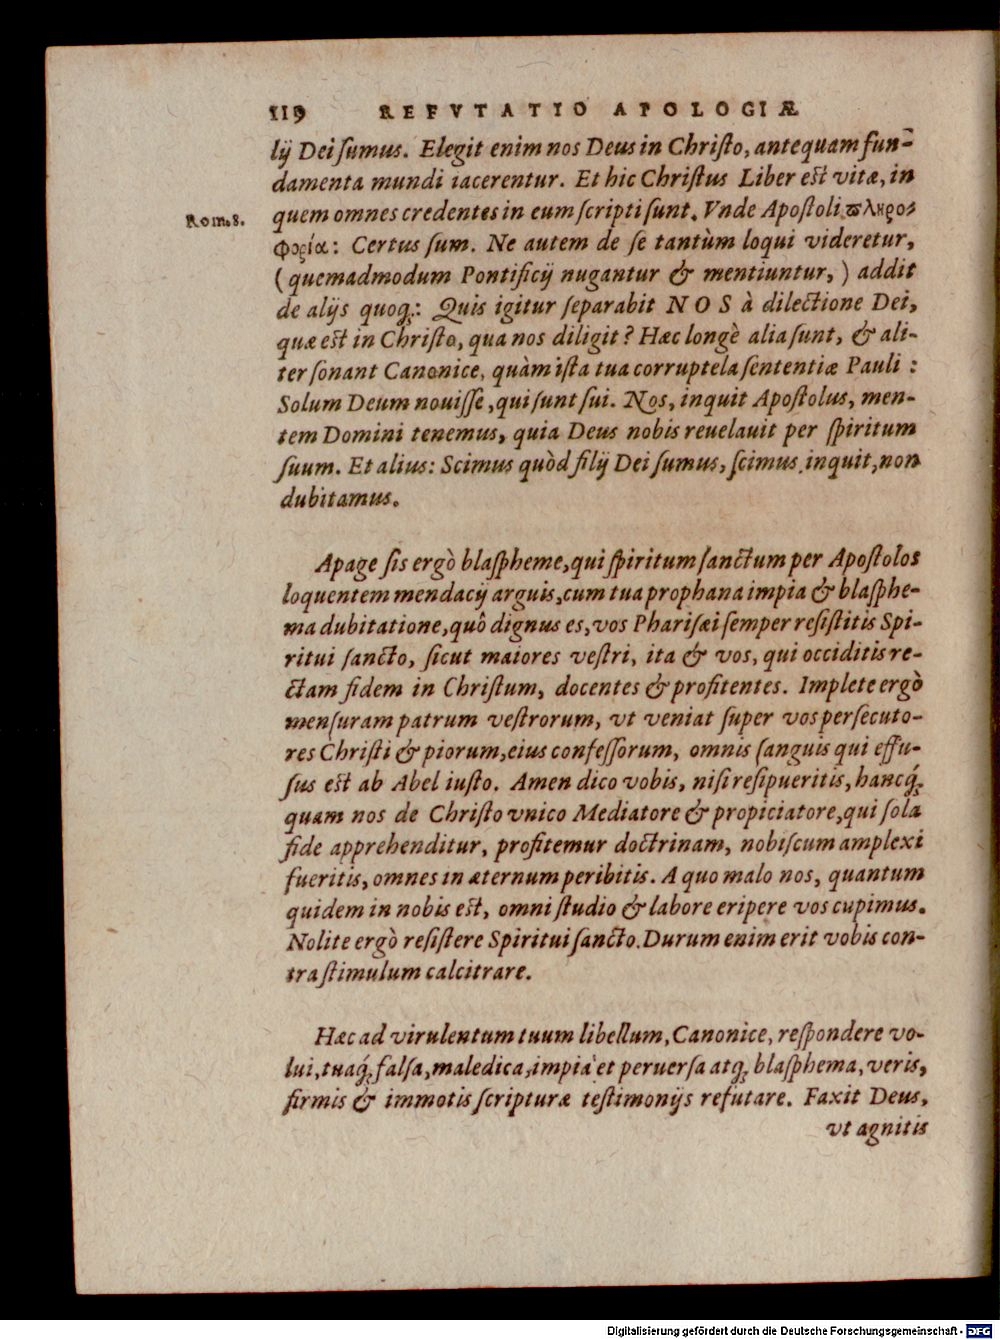 119 REFVTATIO APOLOGIÆ
lij Dei ſumus. Elegit enim nos Deus in Chriſto, antequam fun-
damenta mundi iacerentur. Et hic Chriſtus Liber est vitæ, in
Rom. 8.
quem omnes credentes in eum ſcripti ſunt. Vnde Apoſtoli ϖληρο-
φορία: Certus ſum. Ne autem de ſe tantùm loqui videretur,
(quemadmodum Pontificij nugantur & mentiuntur,) addit
de alijs quoq;: Quis igitur ſeparabit NOS à dilectione Dei,
quæ est in Chriſto, qua nos diligit? Hæc longè alia ſunt, & ali-
ter ſonant Canonice, quàm iſta tua corruptela ſententiæ Pauli:
Solum Deum nouiſſe, qui ſunt ſui. Nos, inquit Apoſtolus, men-
tem Domini tenemus, quia Deus nobis reuelauit per ſpiritum
ſuum. Et alius: Scimus quòd filij Dei ſumus, ſcimus inquit, non
dubitamus.
Apage ſis ergò blaſpheme, qui ſpiritum ſanctum per Apoſtolos
loquentem mendacij arguis, cum tua prophana impia & blaſphe-
ma dubitatione, quô dignus es, vos Phariſæi ſemper reſiſtitis Spi-
ritui ſancto, ſicut maiores veſtri, ita & vos, qui occiditis re-
ctam fidem in Chriſtum, docentes & profitentes. Implete ergò
menſuram patrum veſtrorum, vt veniat ſuper vos perſecuto-
res Chriſti & piorum, eius confeſſorum, omnis ſanguis qui effu-
ſus est ab Abel iuſto. Amen dico vobis, niſi reſipueritis, hancq́;
quam nos de Chriſto vnico Mediatore & propiciatore, qui ſola
fide apprehenditur, profitemur doctrinam, nobiſcum amplexi
fueritis, omnes in æternum peribitis. A quo malo nos, quantum
quidem in nobis est, omni ſtudio & labore eripere vos cupimus.
Nolite ergò reſiſtere Spiritui ſancto. Durum enim erit vobis con-
tra ſtimulum calcitrare.
Hæc ad virulentum tuum libellum, Canonice, reſpondere vo-
lui, tuaq́; falſa, maledica, impia et peruerſa atq; blaſphema, veris,
firmis & immotis ſcripturæ teſtimonijs refutare. Faxit Deus,
vt agnitis
Digitalisierung gefördert durch die Deutsche Forschungsgemeinschaft - DFG